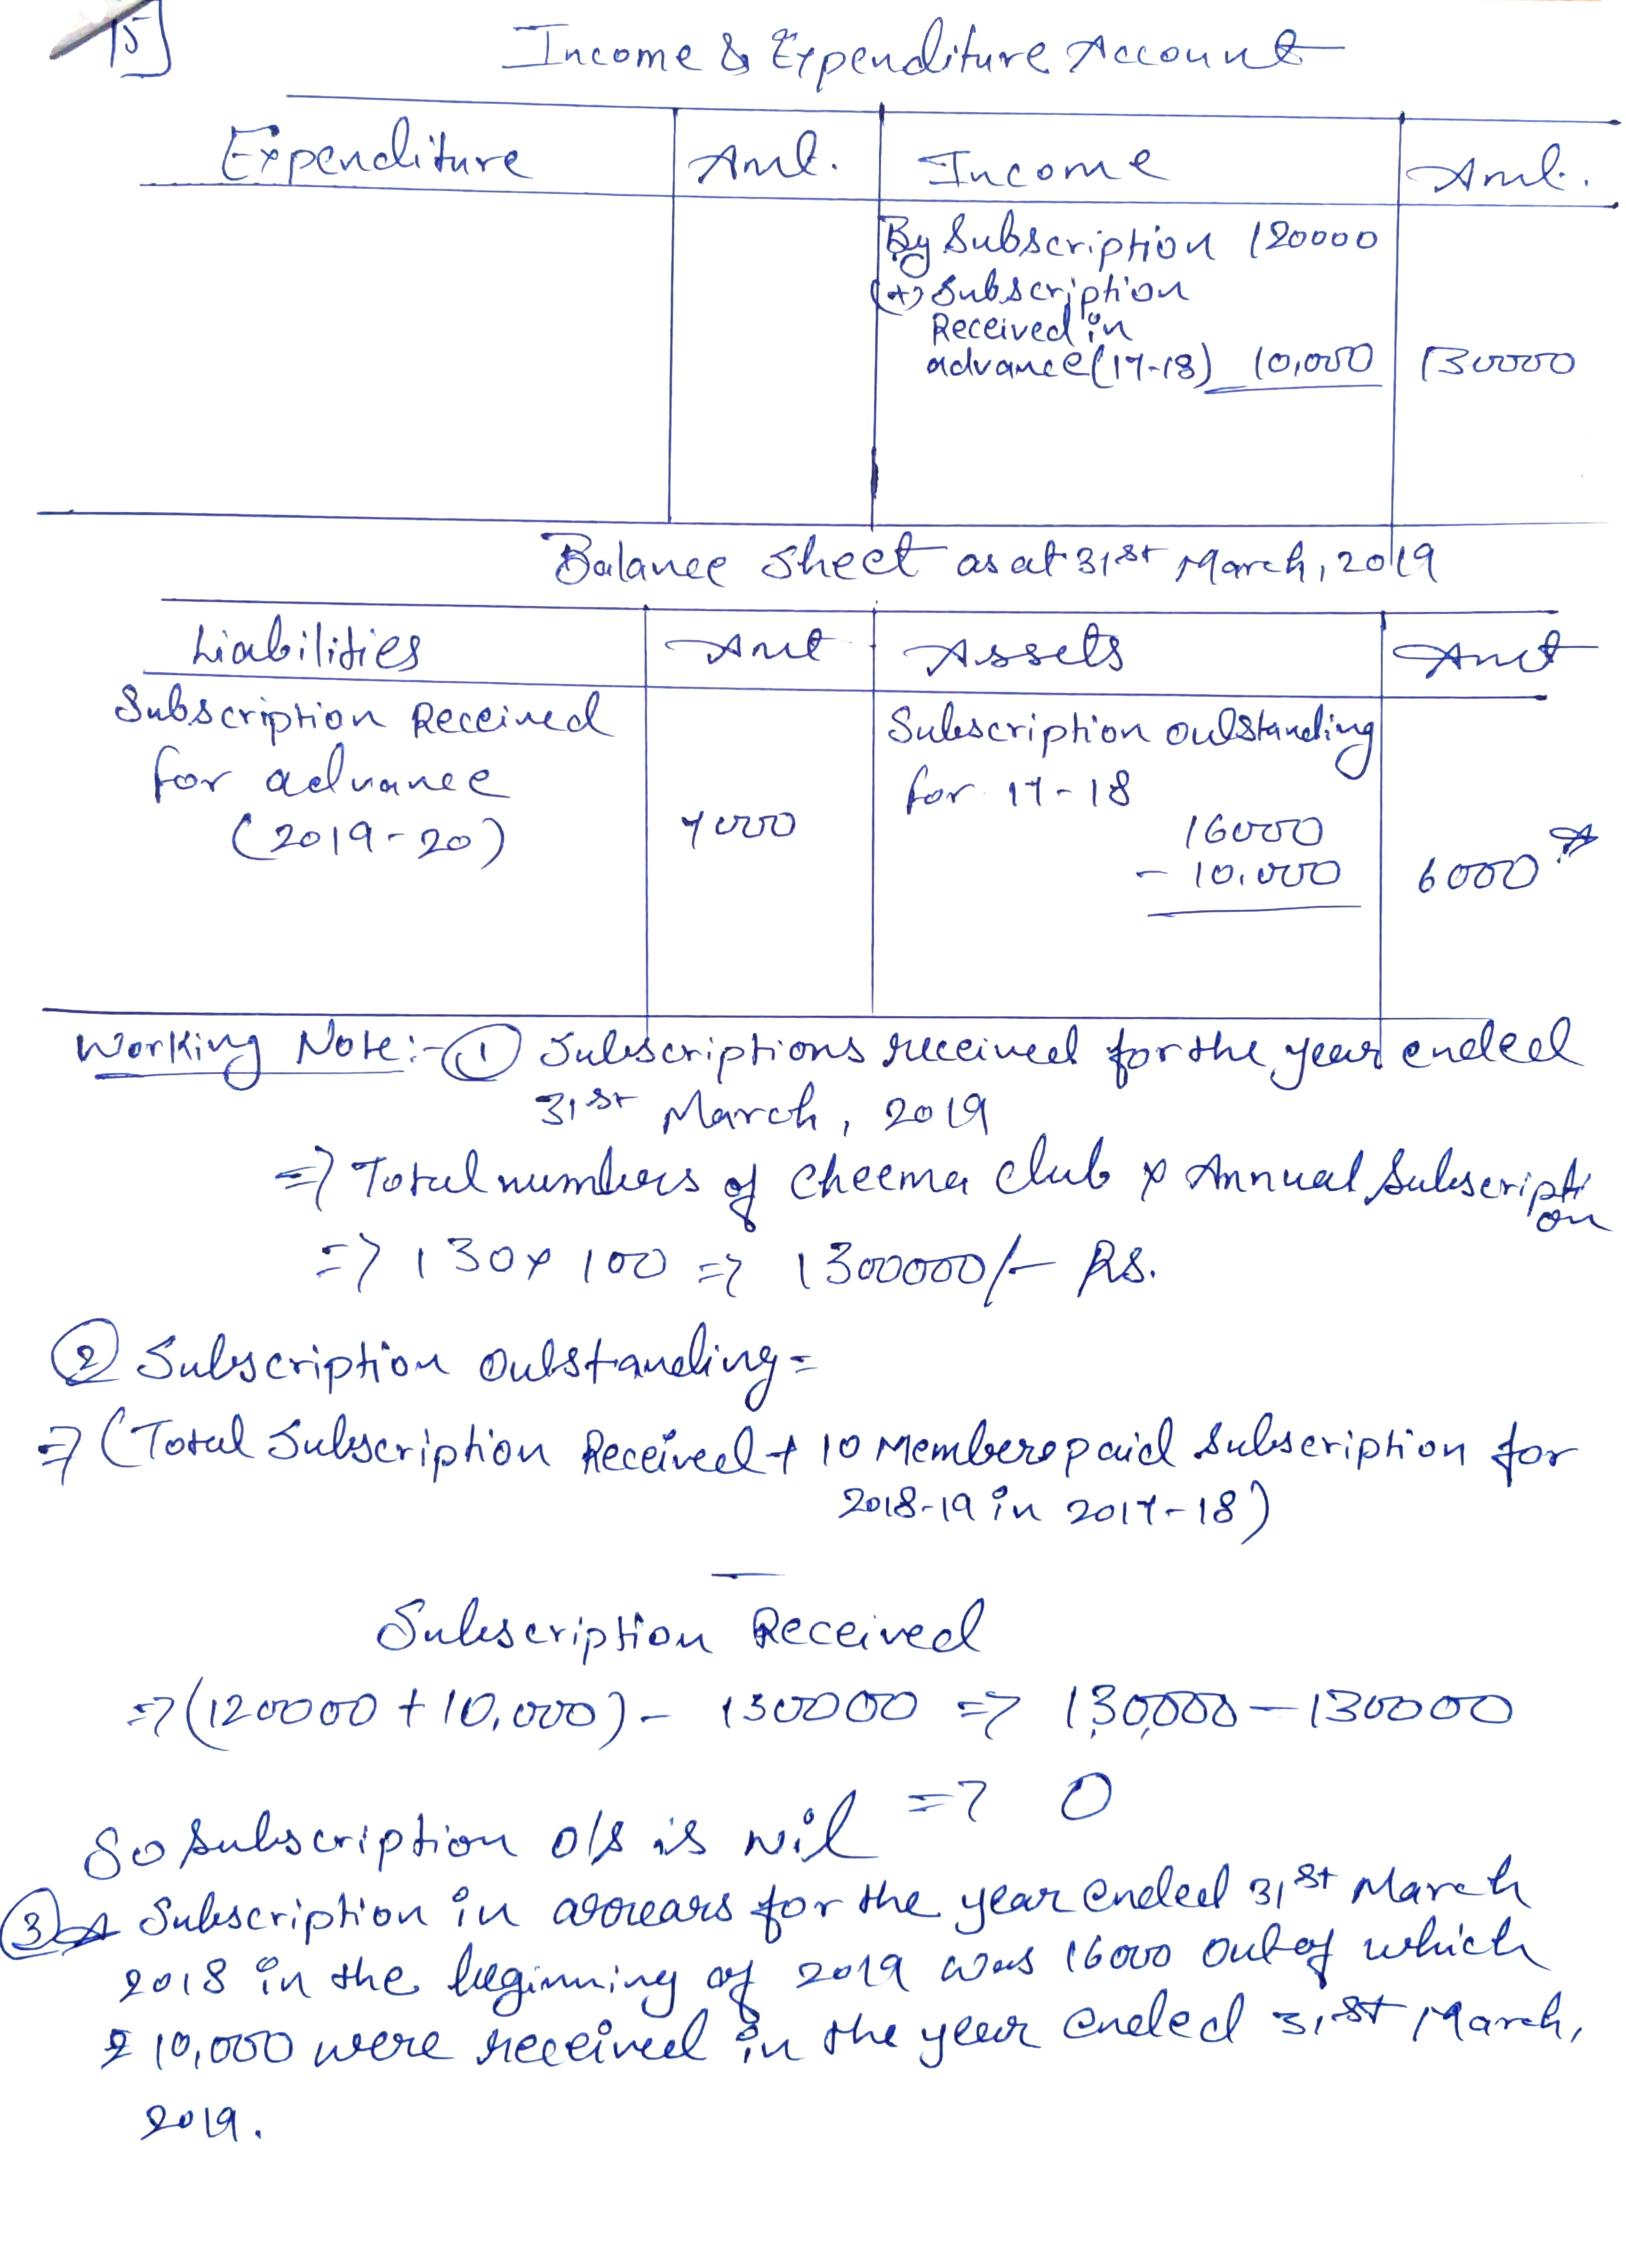 15]
Income & Expenditure Account
Expenditure Amt. Income Amt.
By Subscription 120000
(+) Subscription
Received in
advance (17-18) 10,000 130000
Balance Sheet as at 31st March, 2019
Liabilities Amt Assets Amt
Subscription Received Subscription outstanding
for advance for 17-18
(2019-20) 7000 16000
- 10,000 6000
Working Note:- ① Subscriptions received for the year ended
31st March, 2019
=> Total numbers of Cheema Club x Annual Subscripti
on
=> 130 x 100 => 1300000/- Rs.
② Subscription Outstanding =
=> (Total Subscription Received + 10 Members paid subscription for
2018-19 in 2017-18)
—
Subscription Received
=> (120000 + 10,000) - 130000 => 130,000 - 130000
=> 0
So subscription o/s is nil
③ Subscription in arrears for the year ended 31st March
2018 in the beginning of 2019 was 16000 out of which
₹ 10,000 were received in the year ended 31st March,
2019.